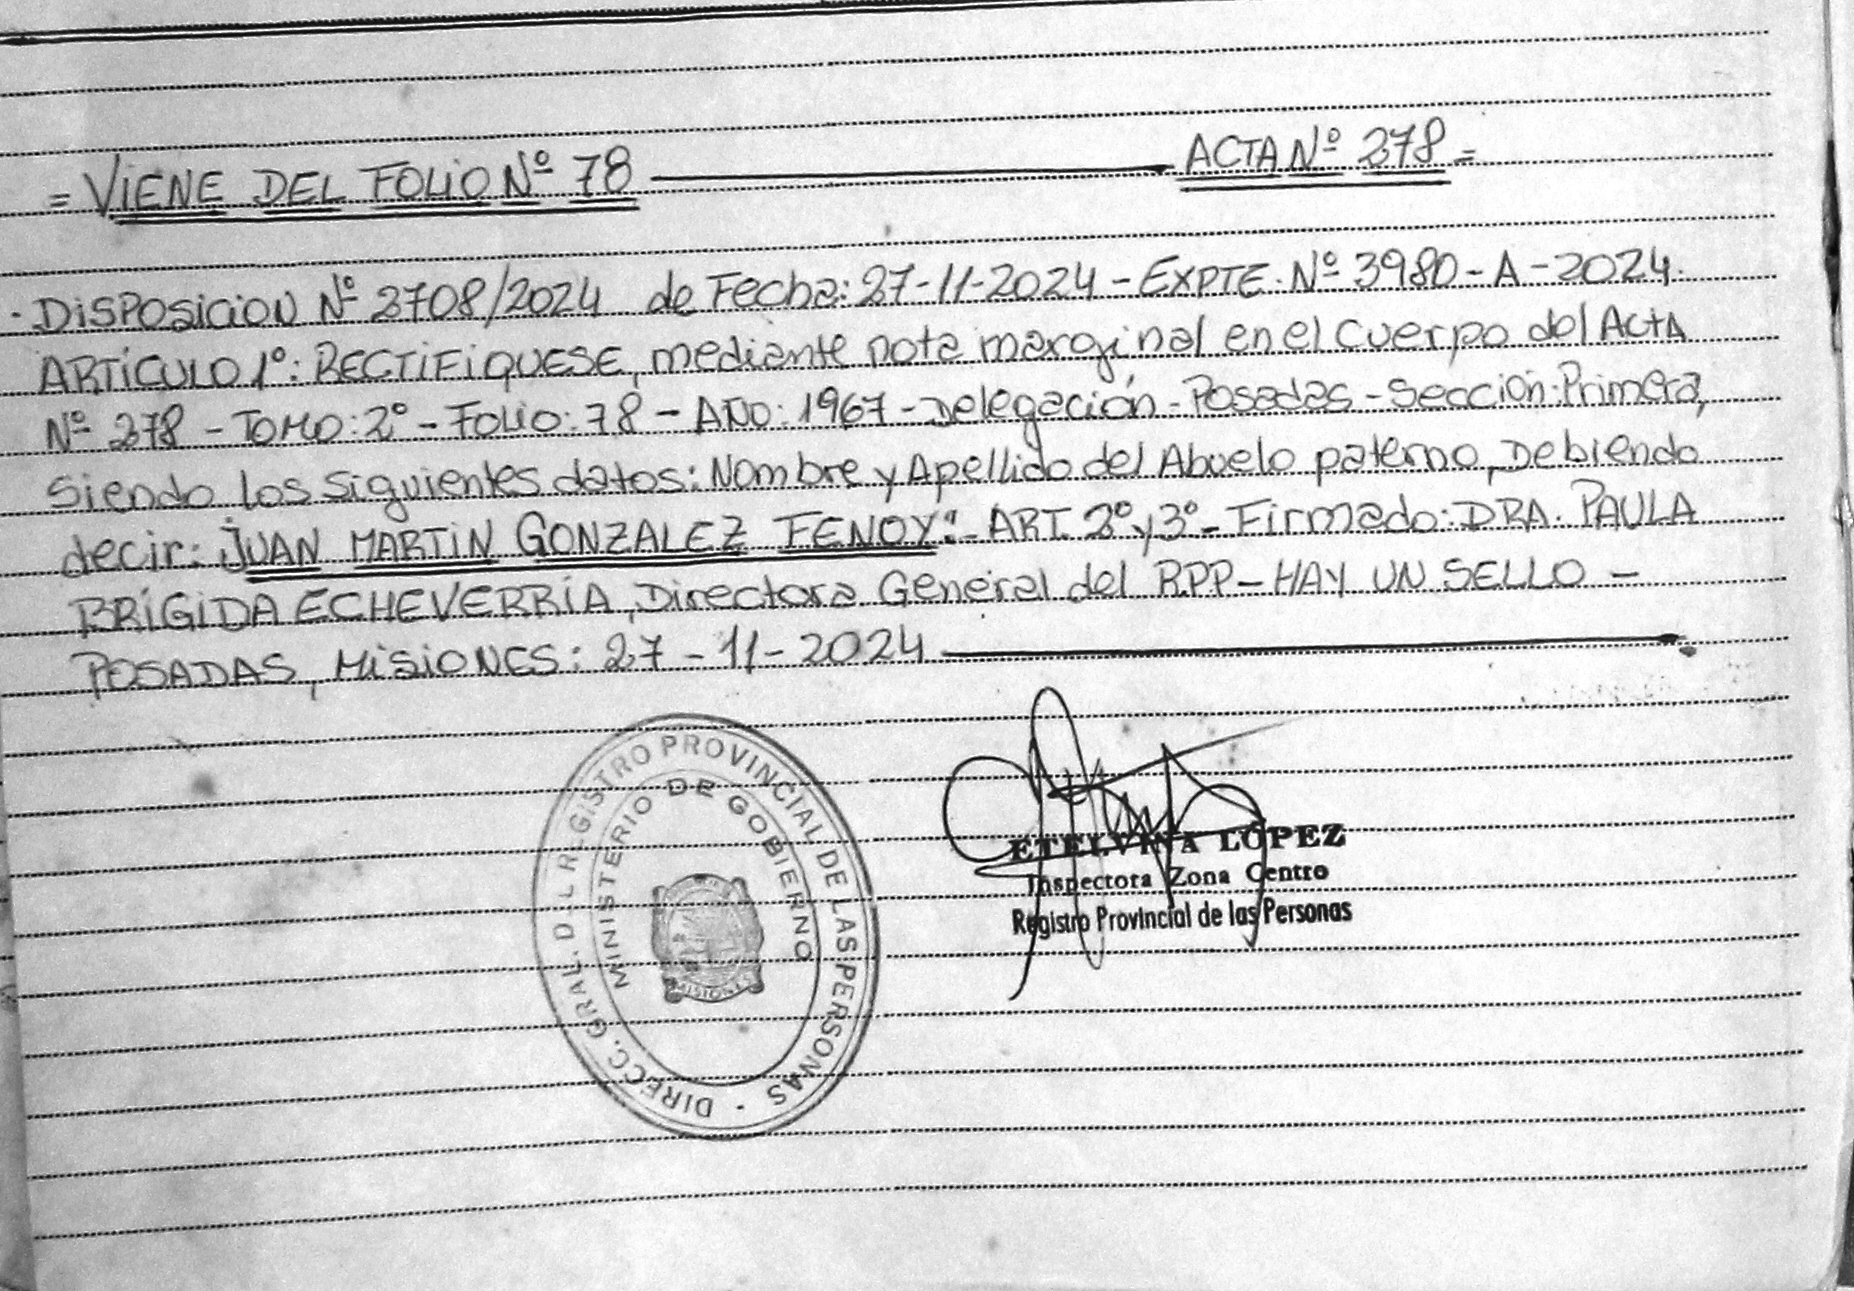 = VIENE DEL FOLIO Nº 78 ACTA Nº 278 =
- DISPOSICION Nº 2708/2024 de Fecha: 27-11-2024 - EXPTE. Nº 3980-A-2024.
ARTÍCULO 1º: RECTIFIQUESE, mediante nota marginal en el cuerpo del ACTA
Nº 278 - TOMO: 2º - FOLIO: 78 - AÑO: 1967 - Delegación - Posadas - Sección: Primera,
Siendo los siguientes datos: Nombre y Apellido del Abuelo paterno, Debiendo
decir: JUAN MARTIN GONZALEZ FENOY".- ART. 2º y 3º - Firmado: DRA. PAULA
BRÍGIDA ECHEVERRÍA, Directora General del RPP - HAY UN SELLO -
POSADAS, MISIONES: 27 - 11 - 2024
DIRECC. GRAL. D L REGISTRO PROVINCIAL DE LAS PERSONAS
MINISTERIO DE GOBIERNO
MISIONES
ETELVINA LOPEZ
Inspectora Zona Centro
Registro Provincial de las Personas